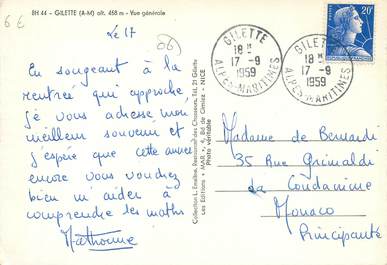 6 E
BH 44 - GILETTE (A-M) alt. 458 m - Vue générale
Le 17
06
En songeant à la
rentrée qui approche
je vous adresse mon
meilleur souvenir et
j'espère que cette année
encore vous voudrez
bien m'aider à
comprendre les maths
Collection L. Emeline, Promenade des Chasseurs, Tél. 21 Gilette
Les Editions « MAR », 4, Bd de Cimiez - NICE
Photo véritable
GILETTE
18 H
17 - 9
1959
ALPES-MARITIMES
GILETTE
18 H
17 - 9
1959
ALPES-MARITIMES
20F
Madame de Bernardi
35 Rue Grimaldi
La Condamine
Monaco
Principauté